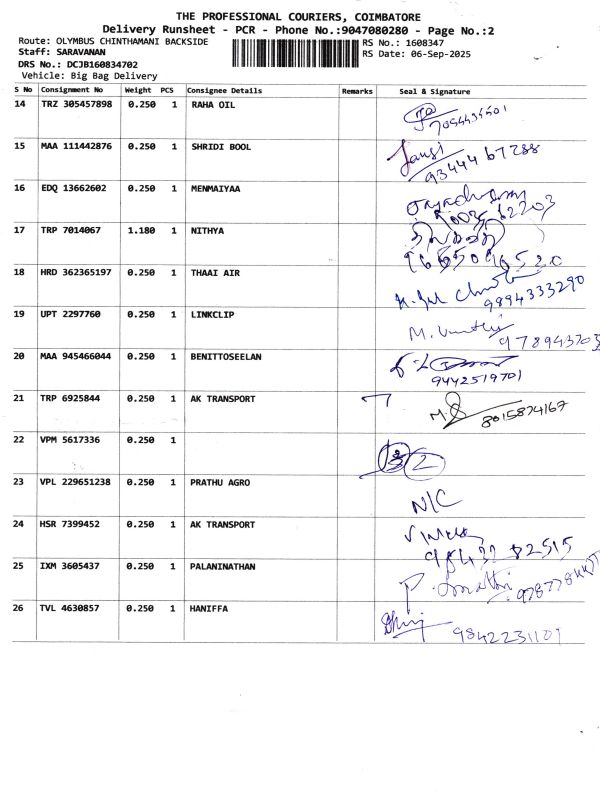 THE PROFESSIONAL COURIERS, COIMBATORE
Delivery Runsheet - PCR - Phone No.:9047080280 - Page No.:2
Route: OLYMBUS CHINTHAMANI BACKSIDE RS No.: 1608347
Staff: SARAVANAN RS Date: 06-Sep-2025
DRS No.: DCJB160834702
Vehicle: Big Bag Delivery
S No Consignment No Weight PCS Consignee Details Remarks Seal & Signature
14 TRZ 305457898 0.250 1 RAHA OIL
15 MAA 111442876 0.250 1 SHRIDI BOOL
9344467288
16 EDQ 13662602 0.250 1 MENMAIYAA
17 TRP 7014067 1.180 1 NITHYA
18 HRD 362365197 0.250 1 THAAI AIR
9994333290
19 UPT 2297760 0.250 1 LINKCLIP
20 MAA 945466044 0.250 1 BENITTOSEELAN
9442519701
21 TRP 6925844 0.250 1 AK TRANSPORT
8015874167
22 VPM 5617336 0.250 1
2
23 VPL 229651238 0.250 1 PRATHU AGRO
N/C
24 HSR 7399452 0.250 1 AK TRANSPORT
25 IXM 3605437 0.250 1 PALANINATHAN
26 TVL 4630857 0.250 1 HANIFFA
9842231101